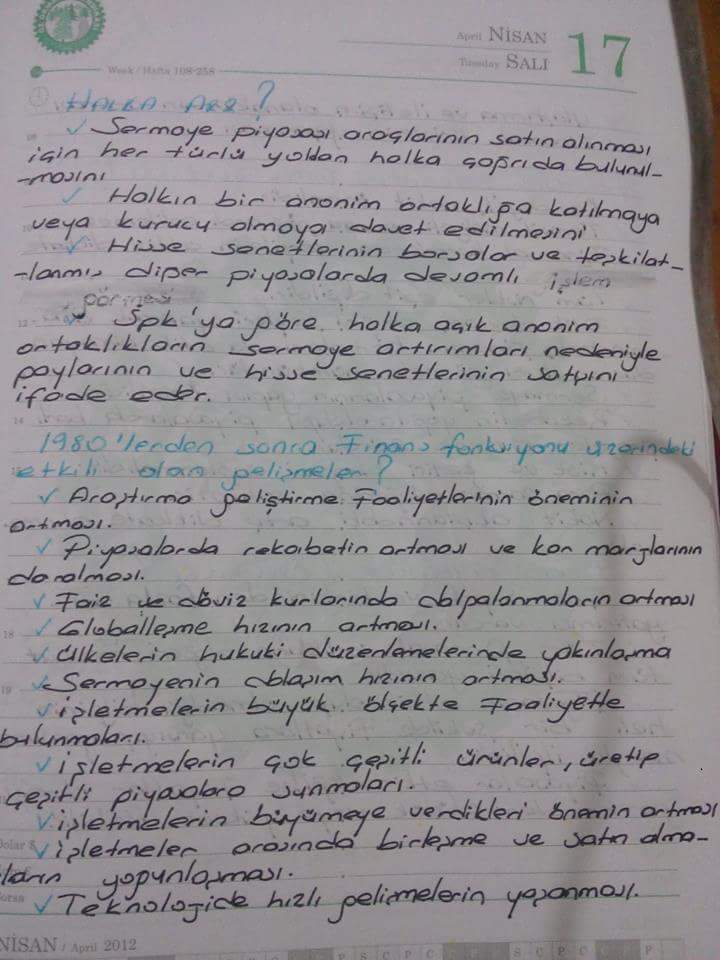 April NİSAN
Tuesday SALI 17
Week / Hafta 108-258
HALKA ARZ ?
✓ Sermaye piyasası araçlarının satın alınması
için her türlü yoldan halka çağrıda bulunul-
-masını
✓ Halkın bir anonim ortaklığa katılmaya
veya kurucu olmaya davet edilmesini
✓ Hisse senetlerinin borsalar ve teşkilat-
-lanmış diğer piyasalarda devamlı işlem
görmesi
✓ Spk'ya göre halka açık anonim
ortaklıkların sermaye artırımları nedeniyle
paylarının ve hisse senetlerinin satışını
ifade eder.
1980'lerden sonra Finans fonksiyonu üzerindeki
etkili olan gelişmeler ?
✓ Araştırma geliştirme Faaliyetlerinin öneminin
artması.
✓ Piyasalarda rekabetin artması ve kar marjlarının
daralması.
✓ Faiz ve döviz kurlarında dalgalanmaların artması
✓ Globalleşme hızının artması.
✓ Ülkelerin hukuki düzenlemelerinde yakınlaşma
✓ Sermayenin dolaşım hızının artması.
✓ işletmelerin büyük ölçekte Faaliyette
bulunmaları.
✓ işletmelerin çok çeşitli ürünler, üretip
çeşitli piyasalara sunmaları.
✓ işletmelerin büyümeye verdikleri önemin artması
✓ işletmeler arasında birleşme ve satın alma-
ların yoğunlaşması.
✓ Teknolojide hızlı gelişmelerin yaşanması.
NİSAN / April 2012